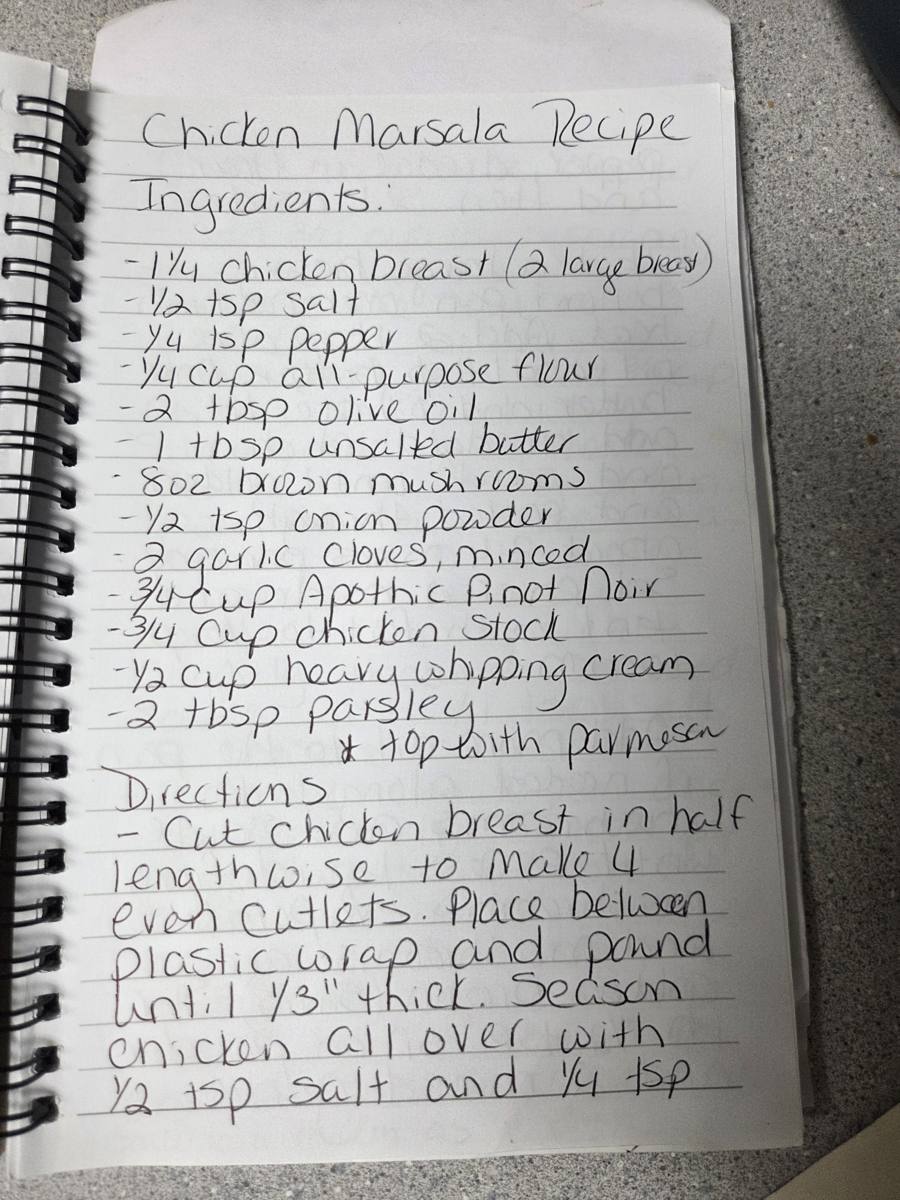 Chicken Marsala Recipe
Ingredients:
- 1 1/4 chicken breast (2 large breast)
- 1/2 tsp salt
- 1/4 tsp pepper
- 1/4 cup all-purpose flour
- 2 tbsp olive oil
- 1 tbsp unsalted butter
- 8oz brown mushrooms
- 1/2 tsp onion powder
- 2 garlic cloves, minced
- 3/4 cup Apothic Pinot Noir
- 3/4 cup chicken stock
- 1/2 cup heavy whipping cream
- 2 tbsp parsley
* top with parmesan
Directions
- Cut chicken breast in half
lengthwise to make 4
even cutlets. Place between
plastic wrap and pound
until 1/3" thick. Season
chicken all over with
1/2 tsp salt and 1/4 tsp